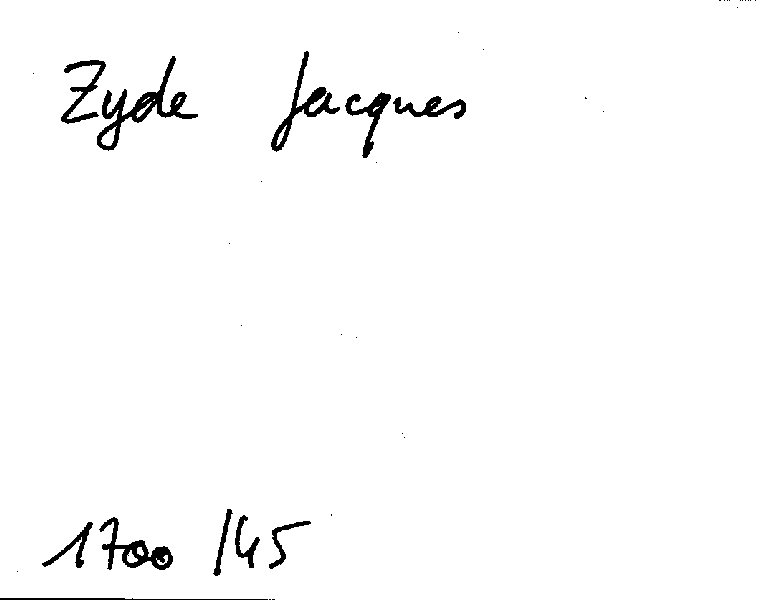 Zyde Jacques
1700 /45